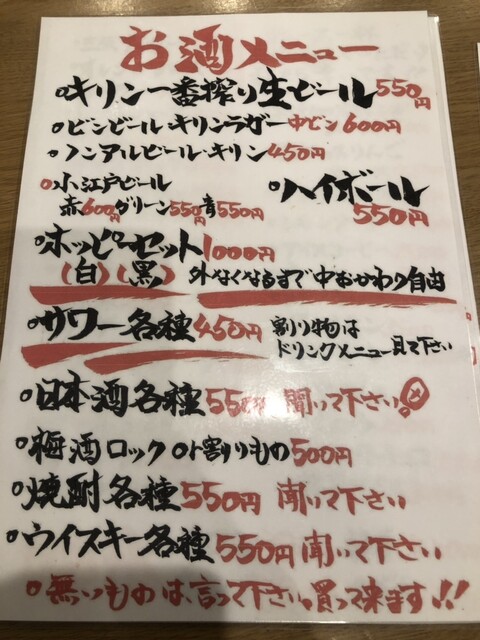 お酒メニュー
キリン一番搾り生ビール550円
ビンビール・キリンラガー中ビン600円
ノンアルビール・キリン450円
小江戸ビール
赤600円グリーン550円青550円
ハイボール
550円
ホッピーセット1000円
(白)(黒) 外なくなるまで中おかわり自由
サワー各種450円 割り物は
ドリンクメニュー見て下さい
日本酒各種550円 聞いて下さい
梅酒ロックor割りもの500円
焼酎各種550円 聞いて下さい
ウイスキー各種550円 聞いて下さい
無いものは、言って下さい。買って来ます!!